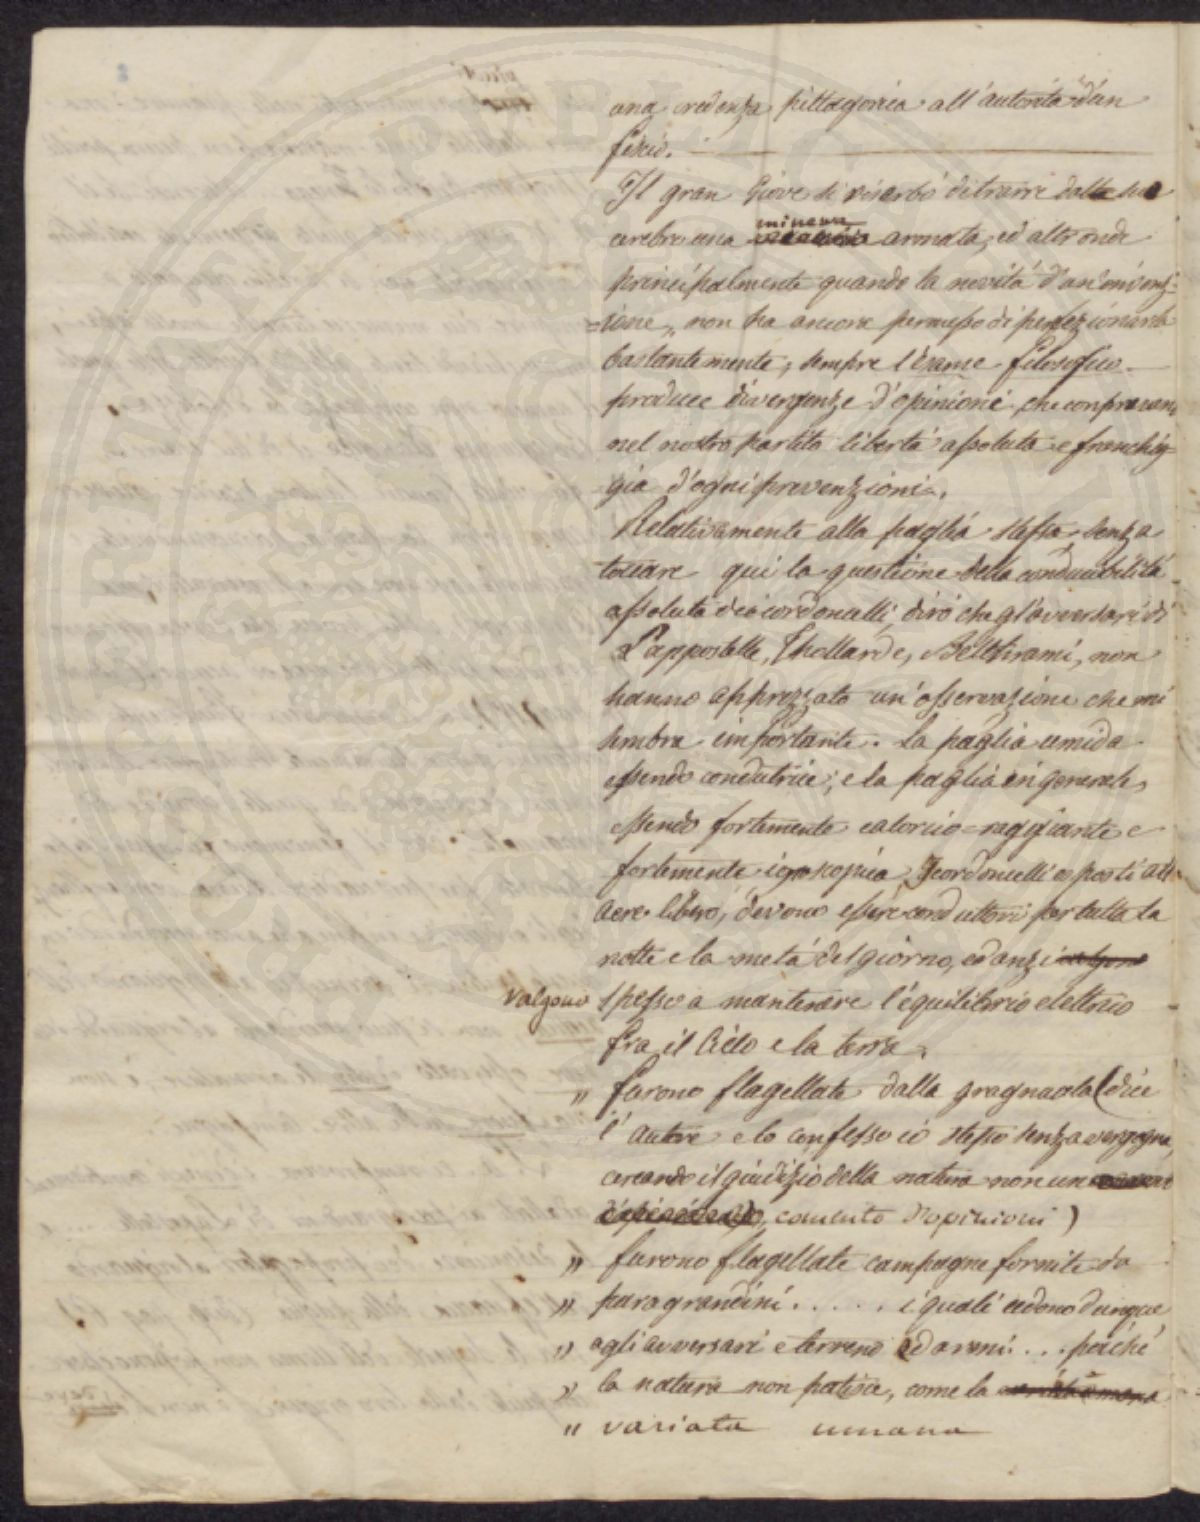 una credenza pittagorica all'autorità d'un
fisico.
Il gran Giove si riserbó di trarre dalla sua
cerebro una minerva armata, ed altronde
principalmente quando la novitá d'un'invenz=
=ione, non ha ancora permesso di perfezionarla
bastantemente, sempre l'esame filosofico
produce divergenze d'opinioni, che comprovan
nel nostro partito libertá assoluta e franchig=
gia d'ogni prevenzioni.
Relativamente alla paglia stessa senza
toccare qui la questione della conducibilitá
assoluta dei cordoncelli, diró che gl'avversari di
Lappostolle, Thollarde, Belthrami, non
hanno apprezzato un'osservazione che mi
sembra importante. La paglia umida
essendo condutrice; e la paglia in generale,
essendo fortemente calorico=raggiante e
fortemente igroscopica I cordoncelli esposti all
aere libero, devono essere conduttori per tutta la
notte e la metá del giorno, ed anzi
valgono spesso a mantenere l'equilibrio elettrico
fra il Cielo e la terra.
" furono flagellate dalla gragnuola (dice
l'autore e lo confesso io stesso senza vergogna,
cercando il giudizio della natura non un
comento d'opinioni)
" furono flagellate campagne fornite da
" paragrandini . . . . . i quali cedono dunque
" agli avversari e terreno ed armi . . . poiché
" la natura non patisce, come la
" variata umana